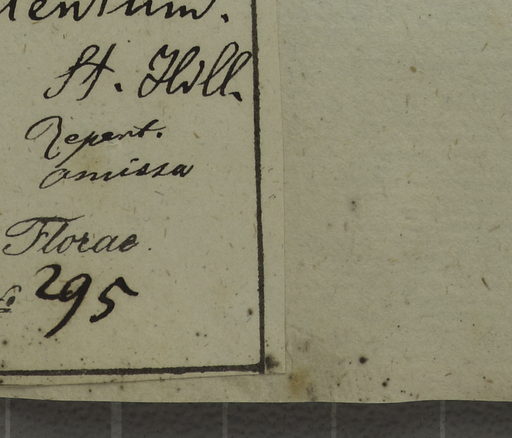 lentum.
St. Hill.
Repert.
amissa
Florae.
№ 295